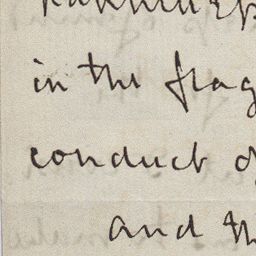 in the frag
conduct o
and th